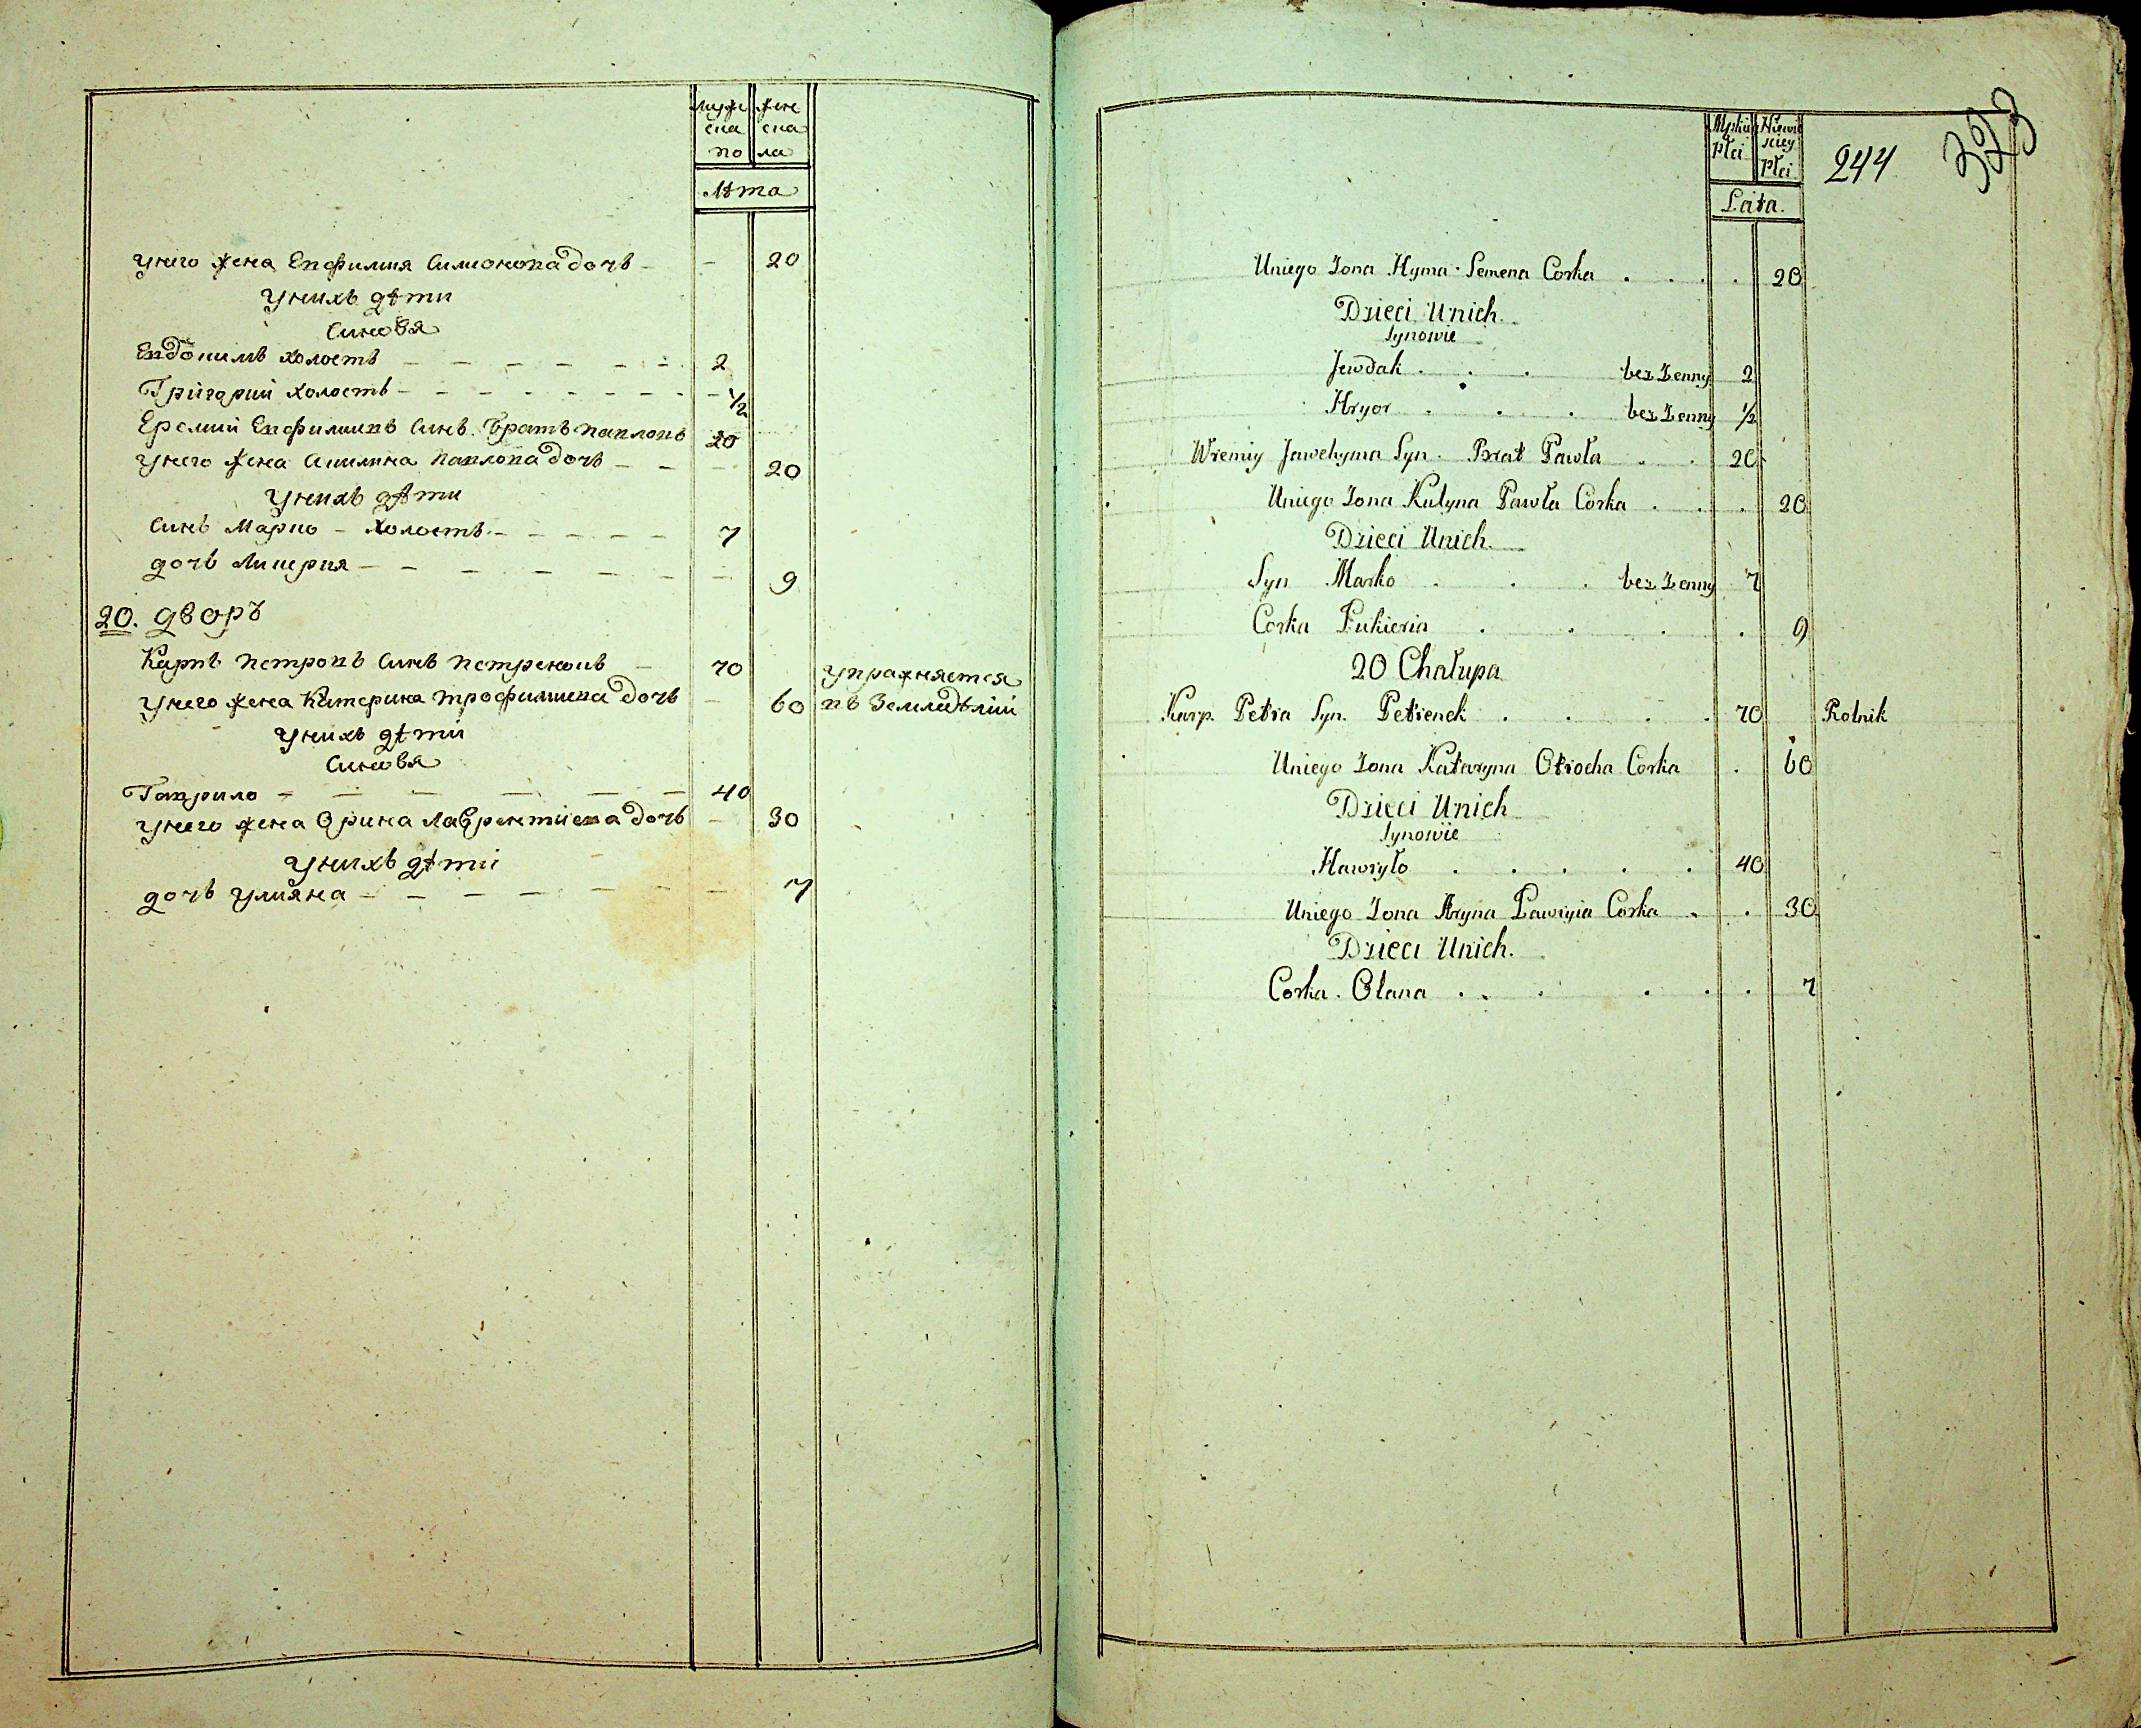 муже
ска
по
жен
ска
ла
Лѣта
унего жена Евфимия Симонова дочь 20
Унихъ дѣти
Синовя
Евдонимъ холостъ 2
Григорий холостъ 1/2
Еремий Евфимиивъ синъ. Братъ павловъ 20
Унего жена Акилина павлова дочь 20
Унихъ дѣти
Синъ Марко - холостъ 7
дочь Ликерия 9
20. дворъ
Карпъ петровъ синъ петренковъ 70 упражняется
Унего жена Катерина трофимиева дочь 60 въ Земледѣлии
Унихъ дѣти
Синовя
Гаврило 40
Унего жена Орина Лаврентиева дочь 30
Унихъ дѣти
дочь Улияна 7
Męskiey
Płci
Niewie
sciey
Płci
244
323
Lata.
Uniego Zona Hyma Semena Corka 20
Dzieci Unich.
Synowie
Jewdak bez Zenny 2
Hryor bez Zenny 1/2
Wremiy Jawchyma Syn. Brat Pawła 20
Uniego Zona Kulyna Pawła Corka 20
Dzieci Unich.
Syn Marko bez Zenny 7
Corka Łukieria 9
20 Chałupa
Karp. Petra Syn. Petrenek 70 Rolnik
Uniego Zona Kateryna Otrocha Corka 60
Dzieci Unich
Synowie
Hawryło 40
Uniego Zona Aryna Ławryia Corka 30
Dzieci Unich.
Corka. Olana 7